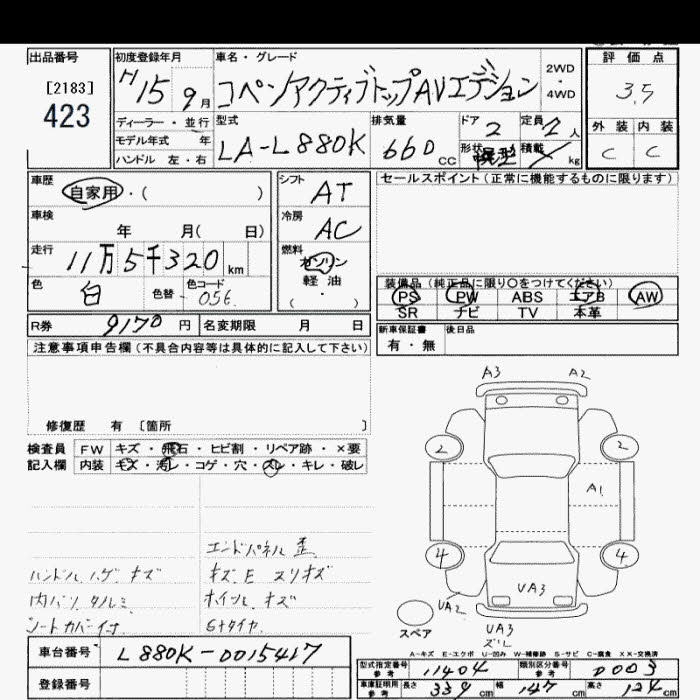 出品番号
[2183]
423
初度登録年月
H15年9月
ディーラー・並行
モデル年式 年
ハンドル 左・右
車名・グレード
コペンアクティブトップAVエデション
2WD
・
4WD
型式
LA-L880K
排気量
660cc
ドア
2
定員
2人
形状
積載
kg
評価点
3.5
外装 内装
C C
車歴
自家用・( )
車検
年 月( 日)
走行
11万5千320km
色
白
色替
色コード
056
シフト
AT
冷房
AC
燃料
ガソリン
軽油
( ・ )
セールスポイント(正常に機能するものに限ります)
装備品(純正品に限り○をつけてください)
PS PW ABS エアB AW
SR ナビ TV 本革
R券 9170円 名変期限 月 日
新車保証書
有・無
後日品
注意事項申告欄(不具合内容等は具体的に記入して下さい)
修復歴 有 〔箇所 〕
検査員
記入欄
FW キズ・飛石・ヒビ割・リペア跡・×要
内装 キズ・汚レ・コゲ・穴・スレ・キレ・破レ
エンドパネル歪
ハンドルハゲ キズ
キズ E スリキズ
内バリ タルミ
ホイツル キズ
シートカバー付
Sナタイヤ
A3 A2
2 2
A1
4 4
UA3
UA2
UA3
ズレ
スペア
A-キズ E-エクボ U-凹み W-補修跡 S-サビ C-腐食 XX-交換済
車台番号 L880K-0015417
登録番号
型式指定番号
参考
11404
類別区分番号
参考
0003
車庫証明用
参考
長さ 339cm 幅 147cm 高さ 124cm